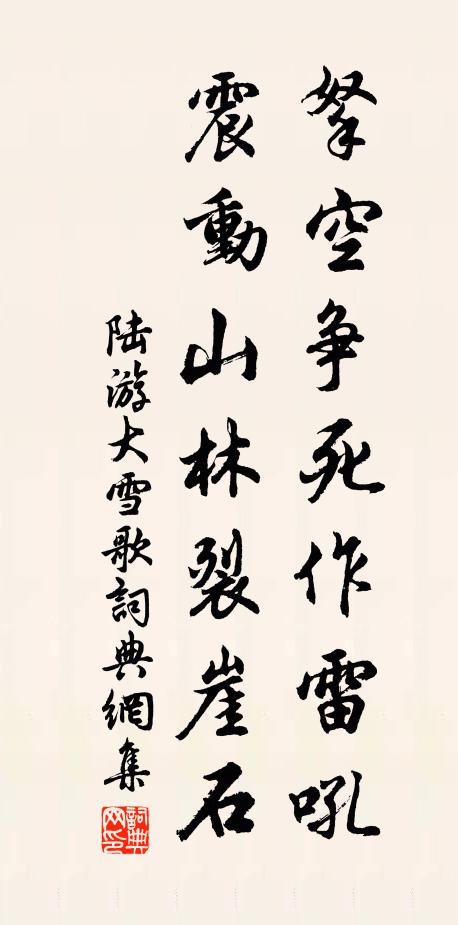 拏空争死作雷吼
震動山林裂崖石
陆游大雪歌詞典網集
詞典网印